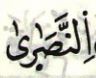 اِلنَّصَٰرىٰ